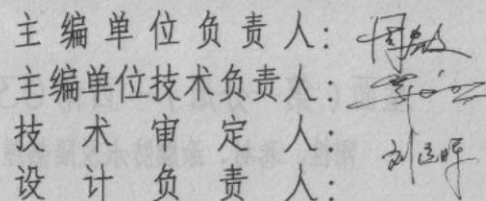 主编单位负责人:
主编单位技术负责人:
技术审定人: 刘
设计负责人: